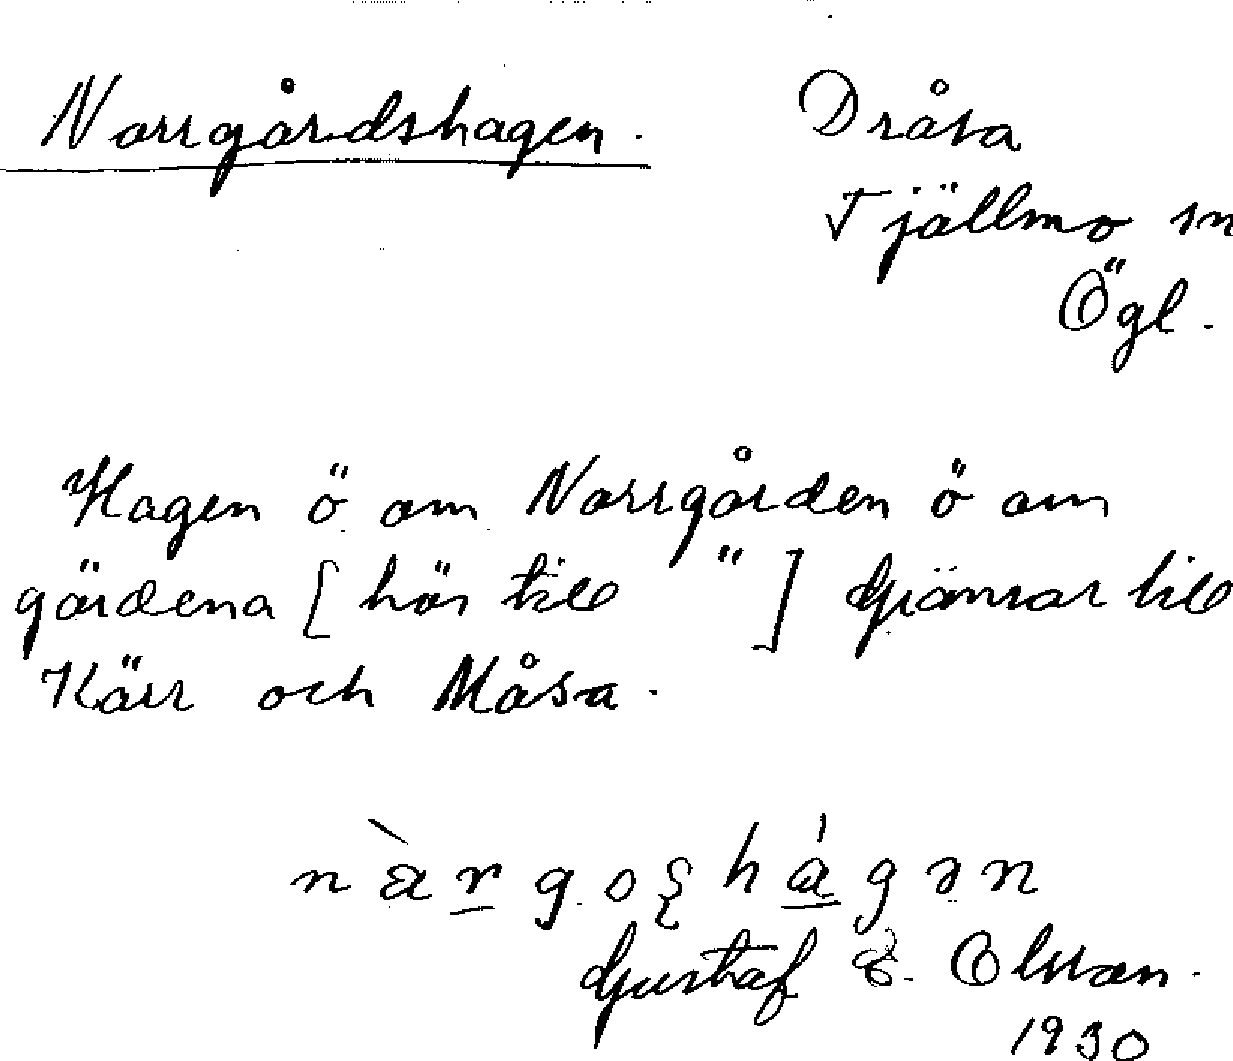 Norrgårdshagen.
Dråsa
Tjällmo sn
Ögl.
Hagen ö om Norrgården ö om
gärdena [hör till "] Gränsar till
Kärr och Måsa.
Gustaf E. Olsson.
1930